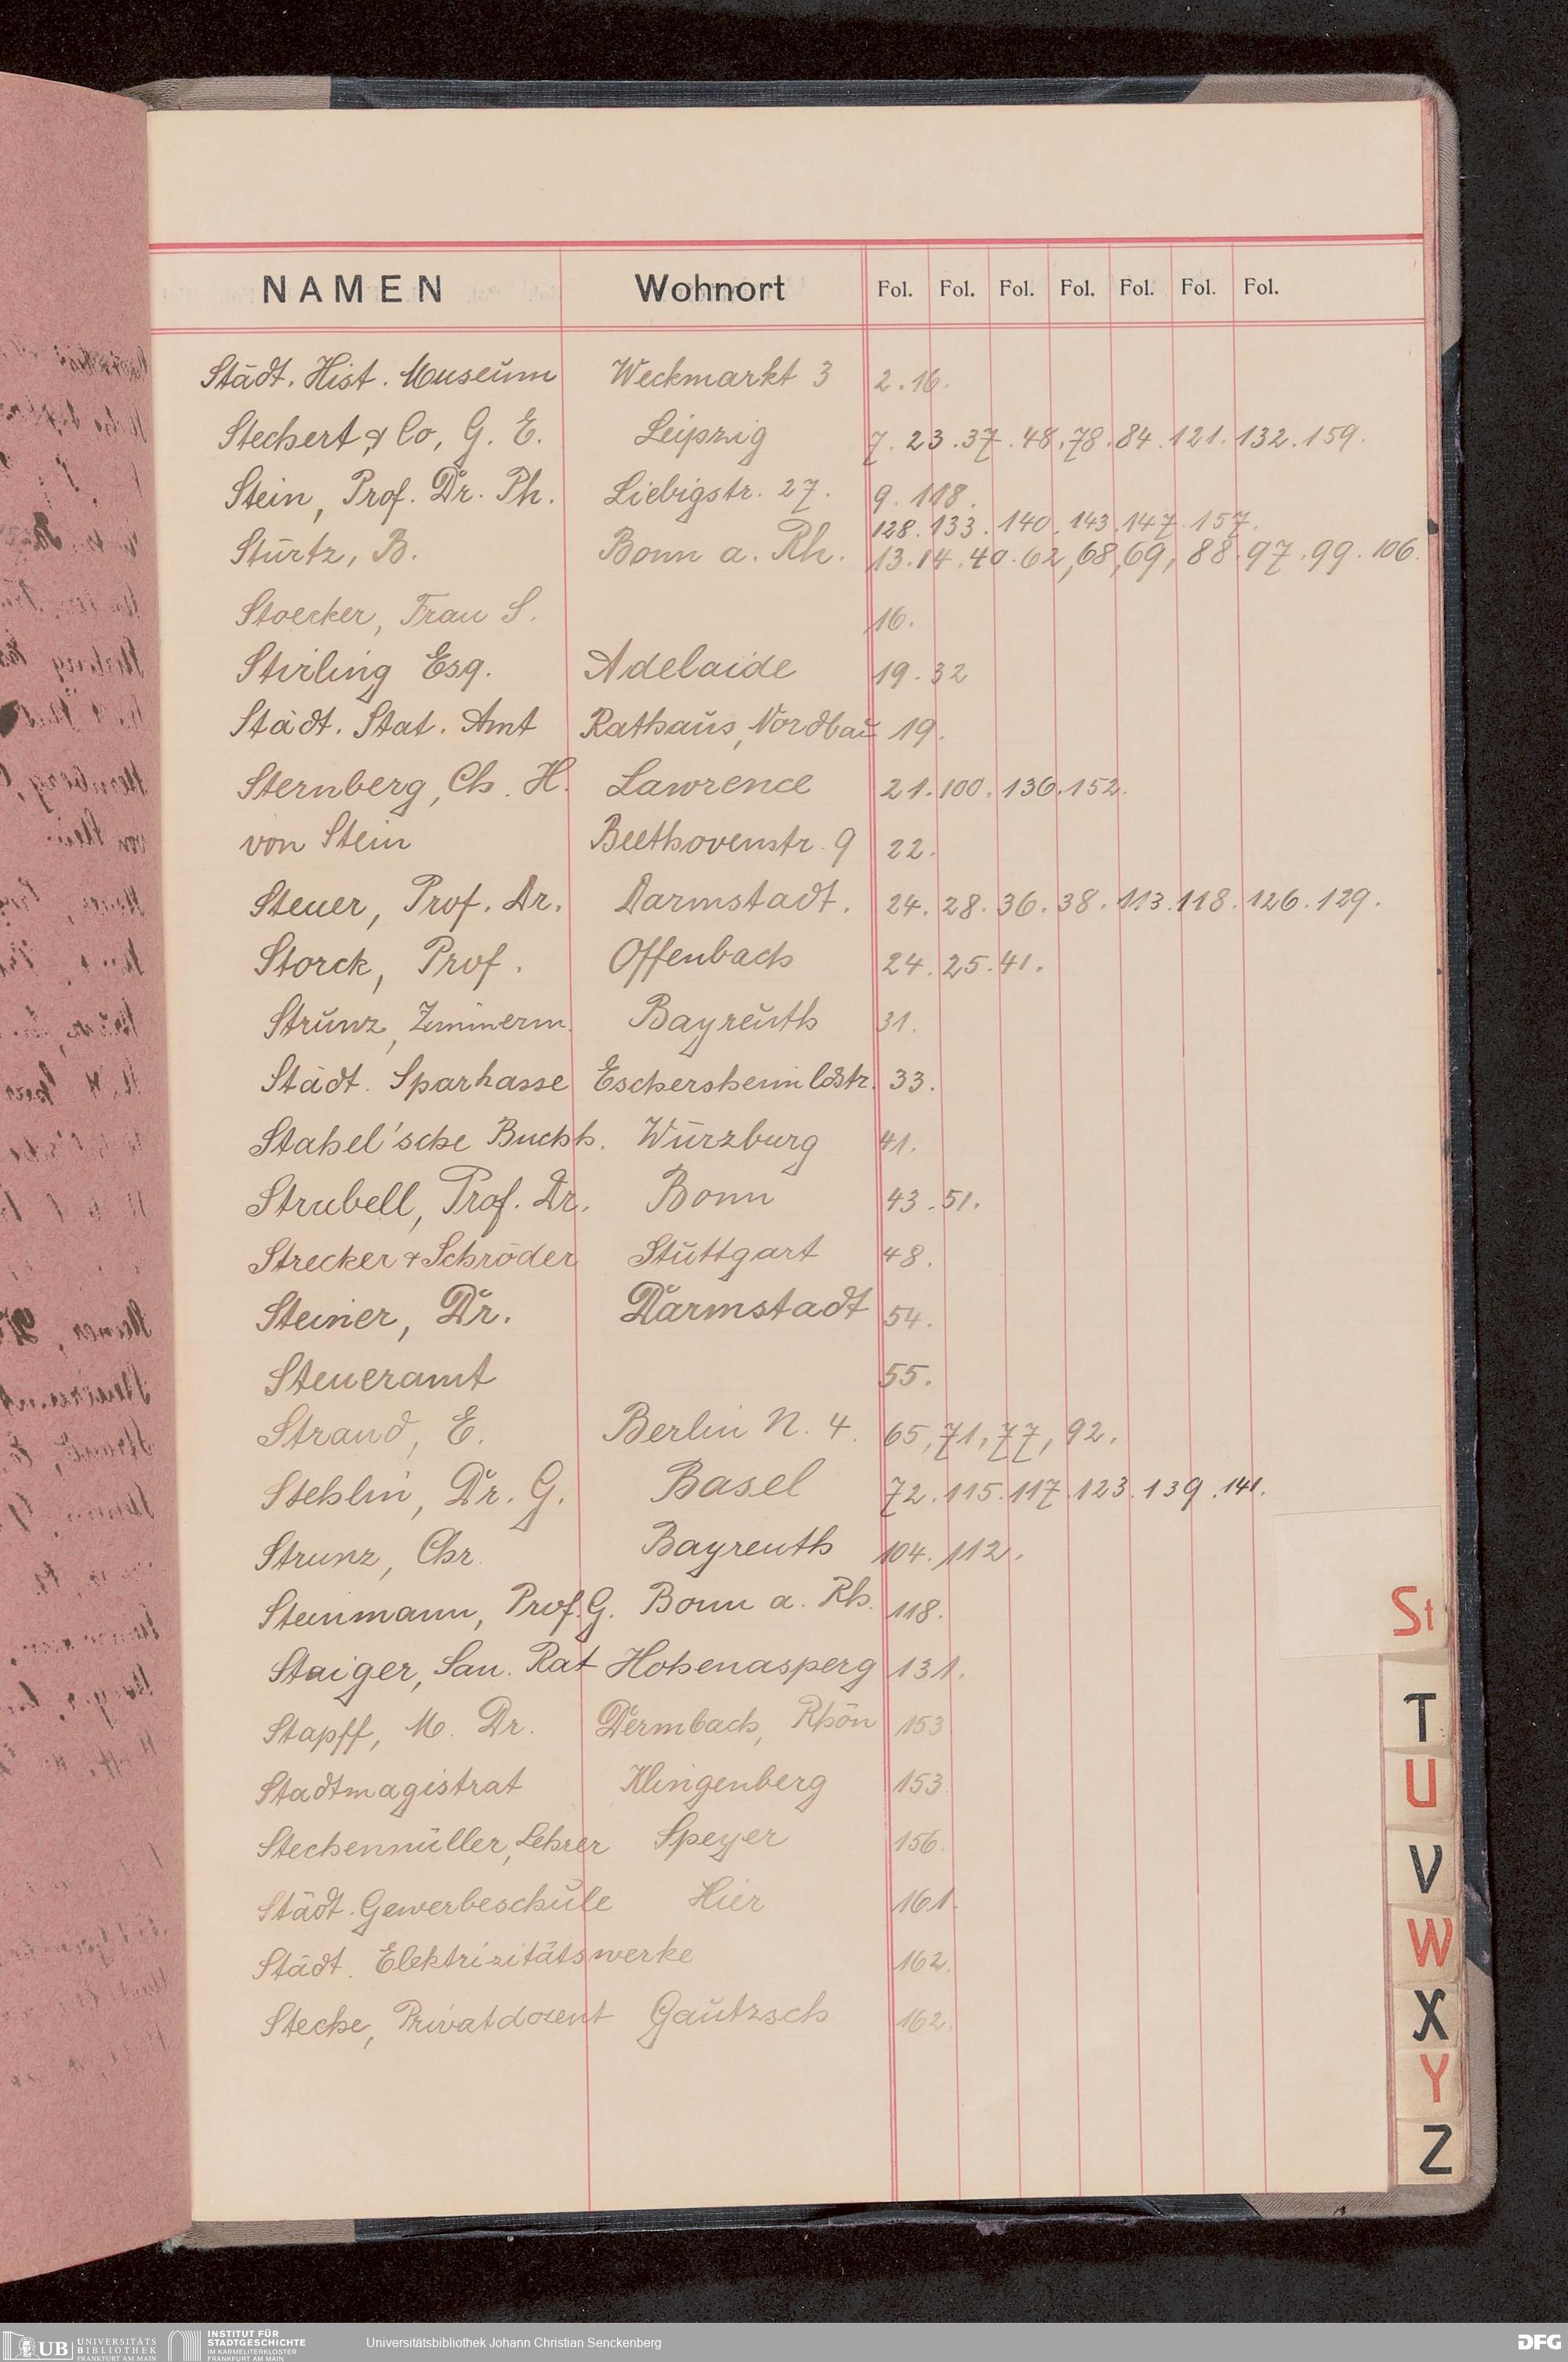 NAMEN Wohnort Fol. Fol. Fol. Fol. Fol. Fol. Fol.
Städt. Hist. Museum Weckmarkt 3 2. 16.
Stechert & Co, G. E. Leipzig 7. 23. 37. 48. 78. 84. 121. 132. 159.
Stein, Prof. Dr. Ph. Liebigstr. 27. 9. 118.
128. 133. 140. 143. 147. 157.
Stürtz, B. Bonn a. Rh. 13. 14. 40. 62, 68, 69, 88. 97. 99. 106.
Stoecker, Frau S. 16.
Stirling Esq. Adelaide 19. 32
Städt. Stat. Amt Rathaus, Nordbau 19.
Sternberg, Ch. H. Lawrence 21. 100. 136. 152.
von Stein Beethovenstr. 9 22.
Steuer, Prof. Dr. Darmstadt. 24. 28. 36. 38. 113. 118. 126. 129.
Storck, Prof. Offenbach 24. 25. 41.
Strunz, Zimmerm. Bayreuth 31.
Städt. Sparkasse Eschersheim Ldstr. 33.
Stahel'sche Buchh. Würzburg 41.
Strubell, Prof. Dr. Bonn 43. 51.
Strecker & Schröder Stuttgart 48.
Steiner, Dr. Darmstadt 54.
Steueramt 55.
Strand, E. Berlin N. 4. 65, 71, 77, 92.
Stehlin, Dr. G. Basel 72. 115. 117. 123. 139. 141.
Strunz, Chr. Bayreuth 104. 112.
Steinmann, Prof. G. Bonn a. Rh. 118.
Staiger, San. Rat Hohenasperg 131.
Stapff, M. Dr. Dermbach, Rhön 153
Stadtmagistrat Klingenberg 153.
Stechenmüller, Lehrer Speyer 156.
Städt. Gewerbeschule Hier 161.
Städt. Elektrizitätswerke 162.
Steche, Privatdozent Gautzsch 162.
St
T
U
V
W
X
Y
Z
UB UNIVERSITÄTS BIBLIOTHEK FRANKFURT AM MAIN
INSTITUT FÜR STADTGESCHICHTE IM KARMELITERKLOSTER FRANKFURT AM MAIN
Universitätsbibliothek Johann Christian Senckenberg
DFG